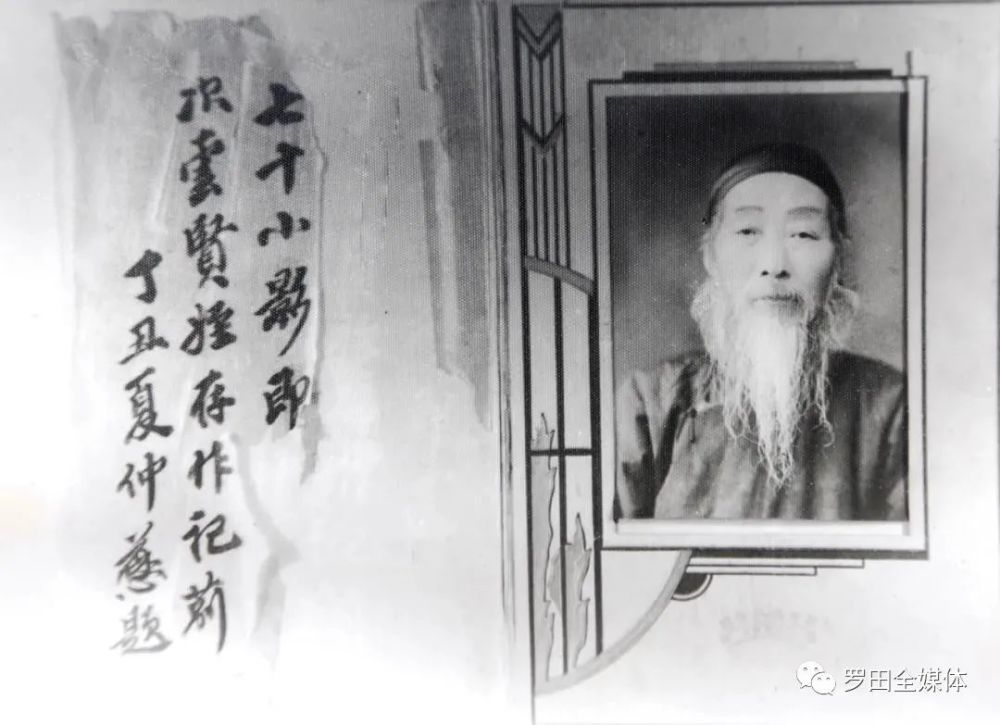 七十小影即
雲賢姪存作記莂
丁丑夏仲慈題
罗田全媒体